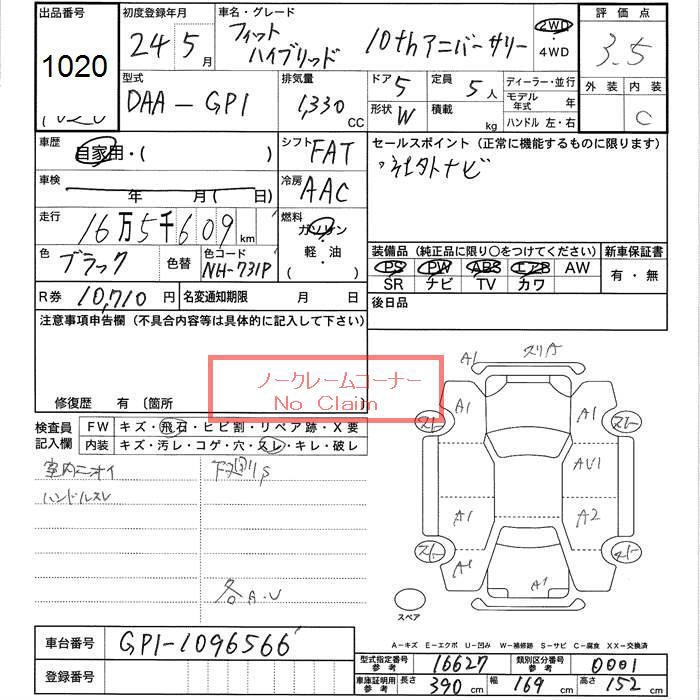 出品番号 初度登録年月 車名・グレード 評価点
1020 24年5月 フィット ハイブリッド 10thアニバーサリー 2WD・4WD 3.5
型式 排気量 ドア 5 定員 5人 ディーラー・並行 外装 内装
DAA-GP1 1,330 CC 形状 W 積載 kg モデル年式 年 C
ハンドル 左・右
車歴 自家用・( ) シフト FAT セールスポイント (正常に機能するものに限ります)
車検 年 月 ( 日) 冷房 AAC 社外ナビ
走行 16万5千609 km 燃料 ガソリン・軽・油 ( )
色 ブラック 色替 色コード NH-731P
装備品 (純正品に限り〇をつけてください) 新車保証書
PS PW ABS エアB AW 有・無
SR ナビ TV カワ
R券 10,710円 名変通知期限 月 日 後日品
注意事項申告欄 (不具合内容等は具体的に記入して下さい)
ノークレームコーナー
No Claim
修復歴 有 〔箇所
検査員記入欄 FW キズ・飛石・ヒビ割・リペア跡・X要
内装 キズ・汚レ・コゲ・穴・スレ・キレ・破レ
室内ニオイ 下廻りS
ハンドルスレ
各A.U
A1 スリ傷
A1 A1
AU1
A1 A2
A1 A1
A1
スペア
A-キズ E-エクボ U-凹み W-補修跡 S-サビ C-腐食 XX-交換済
車台番号 GP1-1096566
登録番号
型式指定番号参考 16627 類別区分番号参考 0001
車庫証明用参考 長さ 390 cm 幅 169 cm 高さ 152 cm